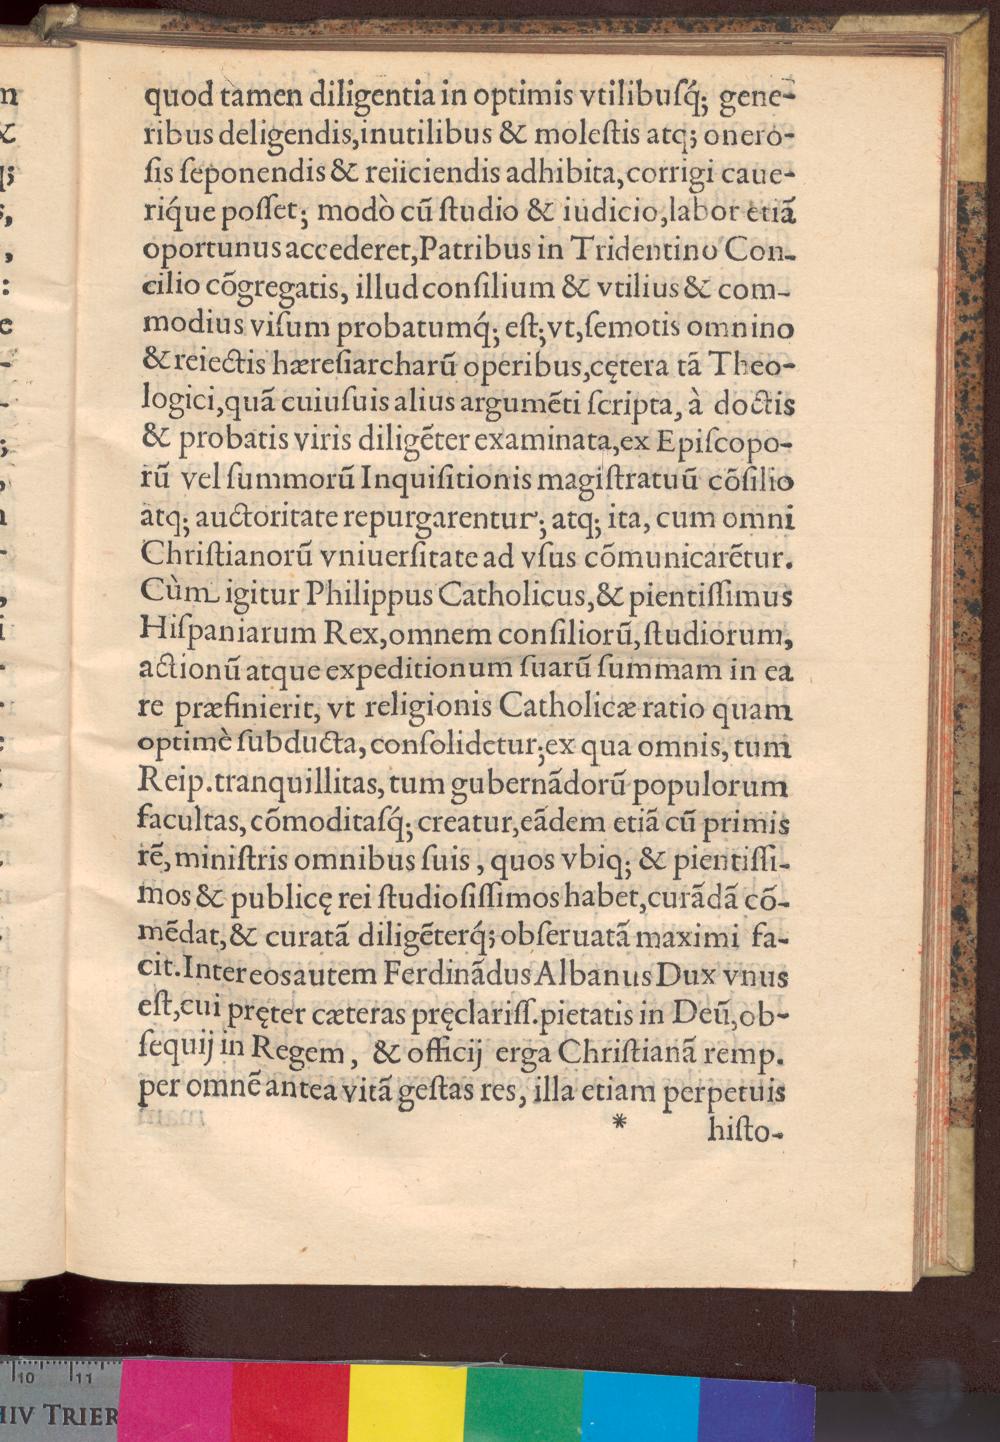 quod tamen diligentia in optimis vtilibuſq́; gene-
ribus deligendis, inutilibus & moleſtis atq; onero-
ſis ſeponendis & reiiciendis adhibita, corrigi caue-
riq́ue poſſet; modò cũ ſtudio & iudicio, labor etiã
oportunus accederet, Patribus in Tridentino Con-
cilio cõgregatis, illud conſilium & vtilius & com-
modius viſum probatumq́; eſt; vt, ſemotis omnino
& reiectis hæreſiarcharũ operibus, cętera tã Theo-
logici, quã cuiuſuis alius argumẽti ſcripta, à doctis
& probatis viris diligẽter examinata, ex Epiſcopo-
rũ vel ſummorũ Inquiſitionis magiſtratuũ cõſilio
atq; auctoritate repurgarentur; atq; ita, cum omni
Chriſtianorũ vniuerſitate ad vſus cõmunicarẽtur.
Cùm igitur Philippus Catholicus, & pientiſſimus
Hiſpaniarum Rex, omnem conſiliorũ, ſtudiorum,
actionũ atque expeditionum ſuarũ ſummam in ea
re præfinierit, vt religionis Catholicæ ratio quam
optimè ſubducta, conſolidetur; ex qua omnis, tum
Reip. tranquillitas, tum gubernãdorũ populorum
facultas, cõmoditaſq́; creatur, eãdem etiã cũ primis
rẽ, miniſtris omnibus ſuis, quos vbiq; & pientiſſi-
mos & publicę rei ſtudioſiſſimos habet, curãdã cõ-
mẽdat, & curatã diligẽterq́; obſeruatã maximi fa-
cit. Inter eos autem Ferdinãdus Albanus Dux vnus
eſt, cui pręter cæteras pręclariſſ. pietatis in Deũ, ob-
ſequij in Regem, & officij erga Chriſtianã remp.
per omnẽ antea vitã geſtas res, illa etiam perpetuis
* hiſto-
10 11
HIV TRIER